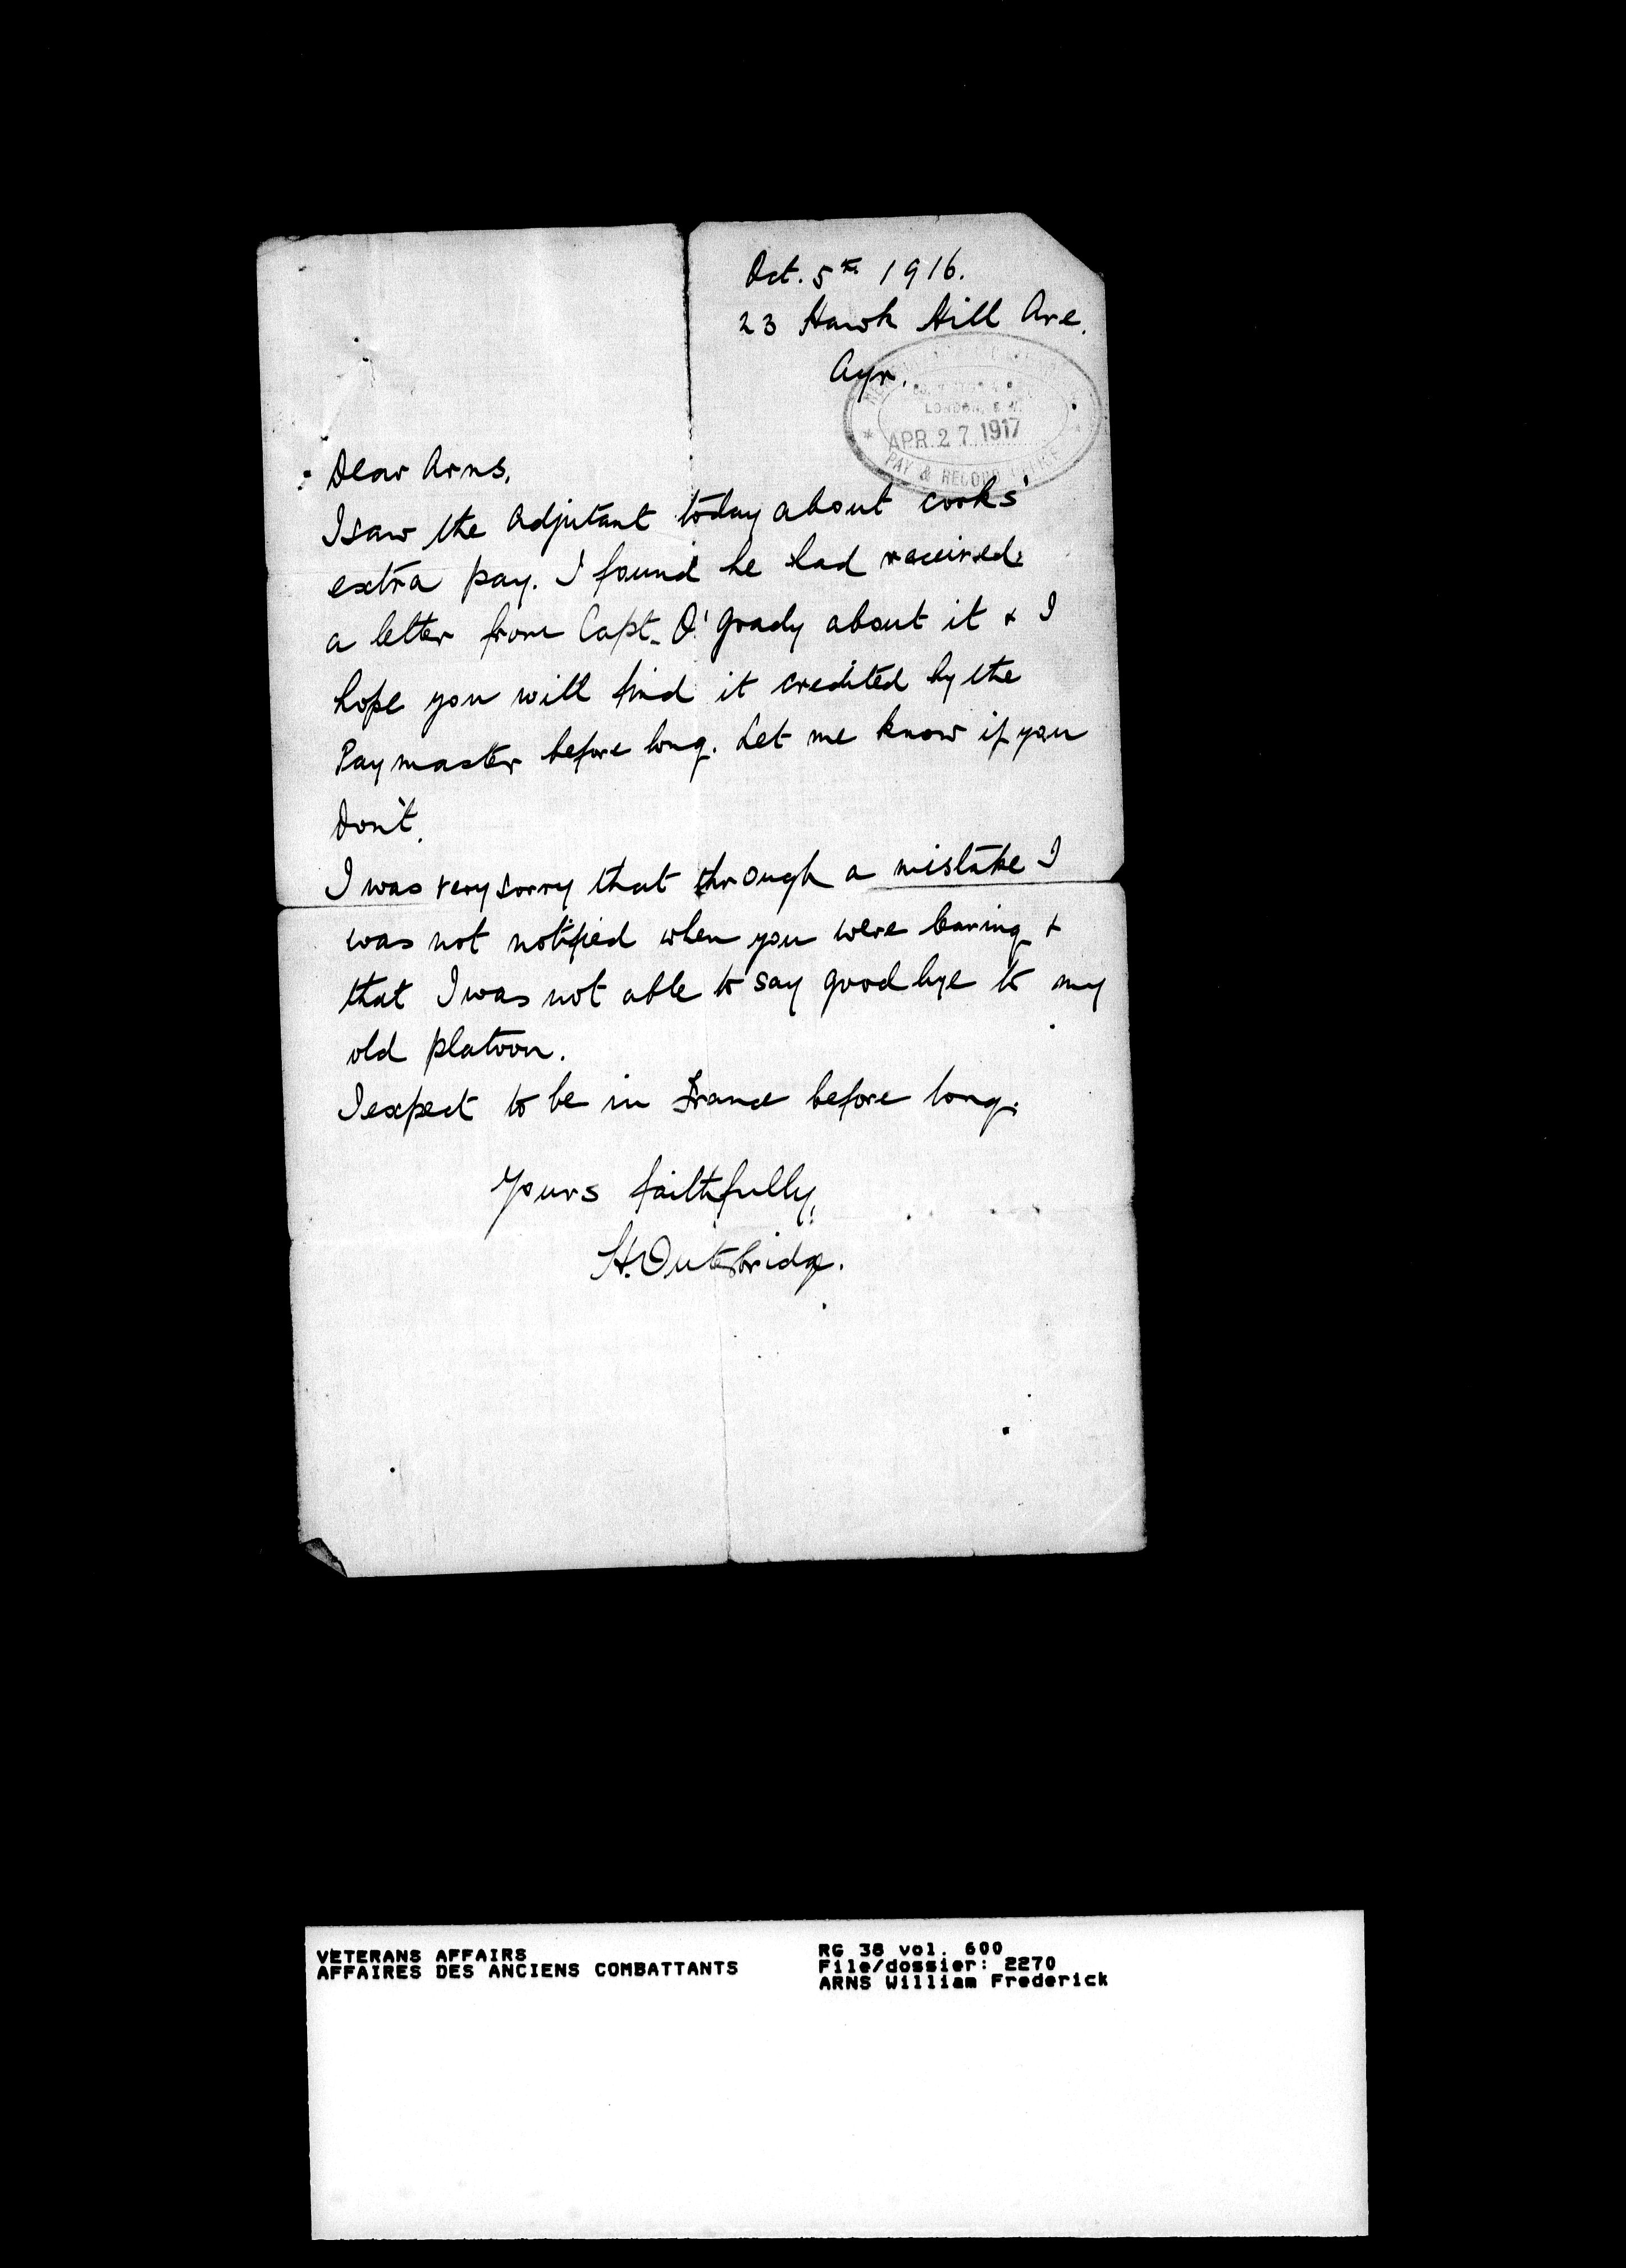 Oct. 5th 1916.
23 Hawk Hill Ave.
Ayr.
LONDON, S.W.
APR 27 1917
PAY & RECORD OFFICE
Dear Arns,
I saw the Adjutant today about cooks'
extra pay. I found he had received
a letter from Capt. O'Grady about it & I
hope you will find it credited by the
Paymaster before long. Let me know if you
don't.
I was very sorry that through a mistake I
was not notified when you were leaving &
that I was not able to say goodbye to my
old platoon.
I expect to be in France before long.
Yours faithfully,
H. Outerbridge.
VETERANS AFFAIRS
AFFAIRES DES ANCIENS COMBATTANTS
RG 38 vol. 600
File/dossier: 2270
ARNS William Frederick